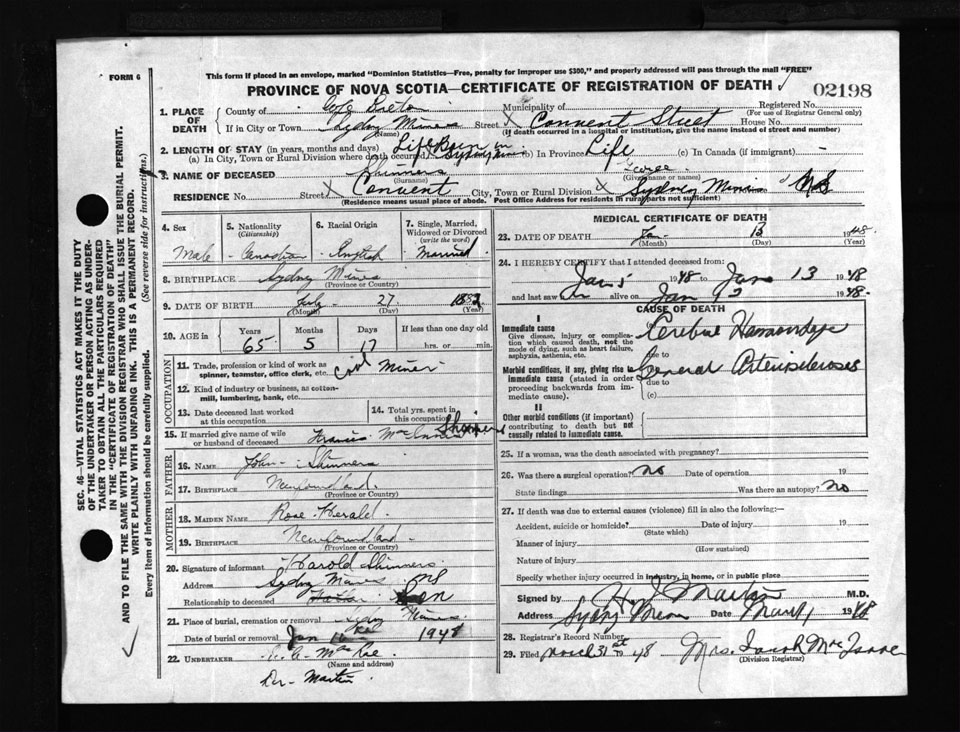 This form if placed in an envelope, marked "Dominion Statistics—Free, penalty for improper use $300," and properly addressed will pass through the mail "FREE"
FORM 6
PROVINCE OF NOVA SCOTIA—CERTIFICATE OF REGISTRATION OF DEATH
02198
1. PLACE OF DEATH
County of Cape Breton
Municipality of
Registered No.
(For use of Registrar General only)
If in City or Town Sydney Mines Street Convent Street House No.
(Name) (If death occurred in a hospital or institution, give the name instead of street and number)
2. LENGTH OF STAY (in years, months and days)
(a) In City, Town or Rural Division where death occurred Life Born in (b) In Province Life (c) In Canada (if immigrant)
3. NAME OF DECEASED Shinners
(Surname) (Given name or names)
RESIDENCE No. Street Convent City, Town or Rural Division Sydney Mines NS
(Residence means usual place of abode. Post Office Address for residents in rural parts not sufficient)
4. Sex
Male
5. Nationality (Citizenship)
Canadian
6. Racial Origin
English
7. Single, Married, Widowed or Divorced (write the word)
Married
8. BIRTHPLACE Sydney Mines
(Province or Country)
9. DATE OF BIRTH July 27 1882
(Month) (Day) (Year)
10. AGE in Years 65 Months 5 Days 17 If less than one day old hrs. or min.
OCCUPATION
11. Trade, profession or kind of work as spinner, teamster, office clerk, etc. Coal Miner
12. Kind of industry or business, as cotton-mill, lumbering, bank, etc.
13. Date deceased last worked at this occupation
14. Total yrs. spent in this occupation
15. If married give name of wife or husband of deceased Francis Shinners
FATHER
16. NAME John Shinners
17. BIRTHPLACE Newfoundland
(Province or Country)
MOTHER
18. MAIDEN NAME Rose Herald
19. BIRTHPLACE Newfoundland
(Province or Country)
20. Signature of informant Harold Shinners
Address Sydney Mines NS
Relationship to deceased Son
21. Place of burial, cremation or removal Sydney Mines
Date of burial or removal Jan 1948
22. UNDERTAKER
(Name and address)
Dr. Martin
MEDICAL CERTIFICATE OF DEATH
23. DATE OF DEATH Jan. 13 1948
(Month) (Day) (Year)
24. I HEREBY CERTIFY that I attended deceased from:
Jan 5 1948 to Jan 13 1948
and last saw alive on Jan 1948
CAUSE OF DEATH
I
Immediate cause
Give disease, injury or complication which caused death, not the mode of dying, such as heart failure, asphyxia, asthenia, etc.
Cerebral Hemorrhage
due to
Morbid conditions, if any, giving rise to immediate cause (stated in order proceeding backwards from immediate cause).
General Arteriosclerosis
due to
(c)
II
Other morbid conditions (if important) contributing to death but not causally related to immediate cause.
25. If a woman, was the death associated with pregnancy?
26. Was there a surgical operation? no Date of operation 19
State findings Was there an autopsy? no
27. If death was due to external causes (violence) fill in also the following:—
Accident, suicide or homicide? Date of injury 19
(State which)
Manner of injury
(How sustained)
Nature of injury
Specify whether injury occurred in industry, in home, or in public place
Signed by Martin M.D.
Address Sydney Mines Date 1948
28. Registrar's Record Number
29. Filed March 31st 48 Mrs. Sarah McIsaac
(Division Registrar)
SEC. 46—VITAL STATISTICS ACT MAKES IT THE DUTY
OF THE UNDERTAKER OR PERSON ACTING AS UNDER-
TAKER TO OBTAIN ALL THE PARTICULARS REQUIRED
IN THE "CERTIFICATE OF REGISTRATION OF DEATH"
AND TO FILE THE SAME WITH THE DIVISION REGISTRAR WHO SHALL ISSUE THE BURIAL PERMIT.
WRITE PLAINLY WITH UNFADING INK. THIS IS A PERMANENT RECORD.
Every item of information should be carefully supplied. (See reverse side for instructions.)